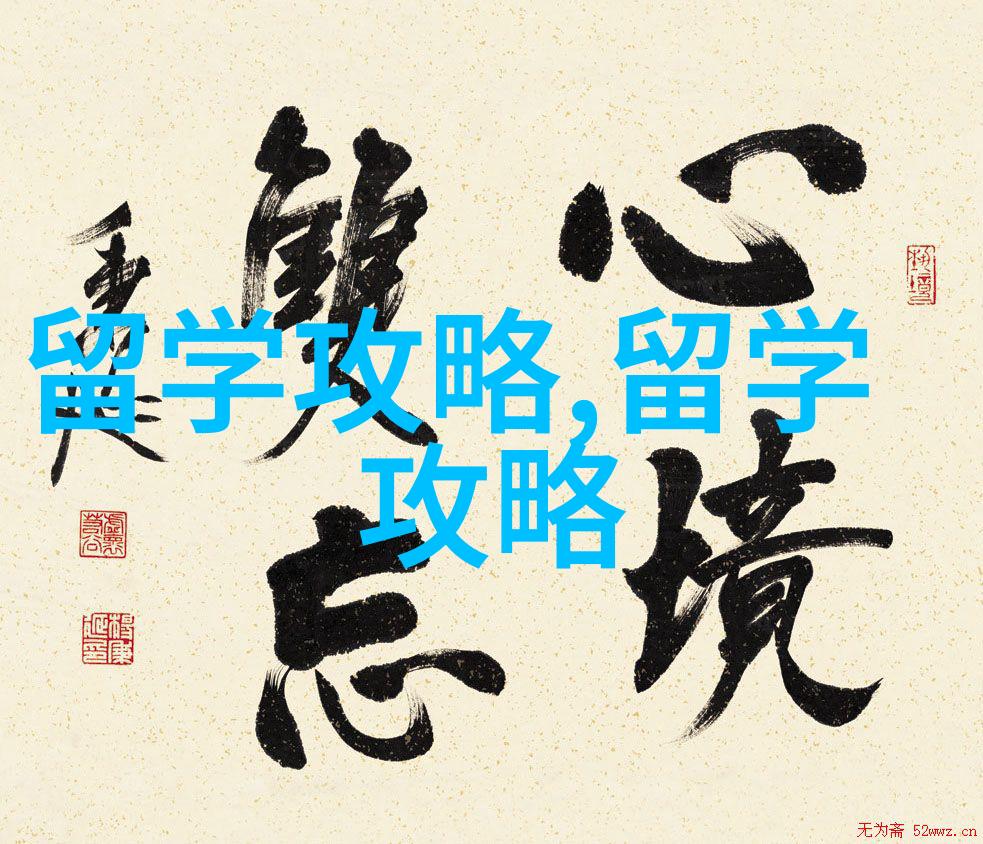 心境
雙忘
留学攻略,留学
攻略
无为斋 52wwz.cn